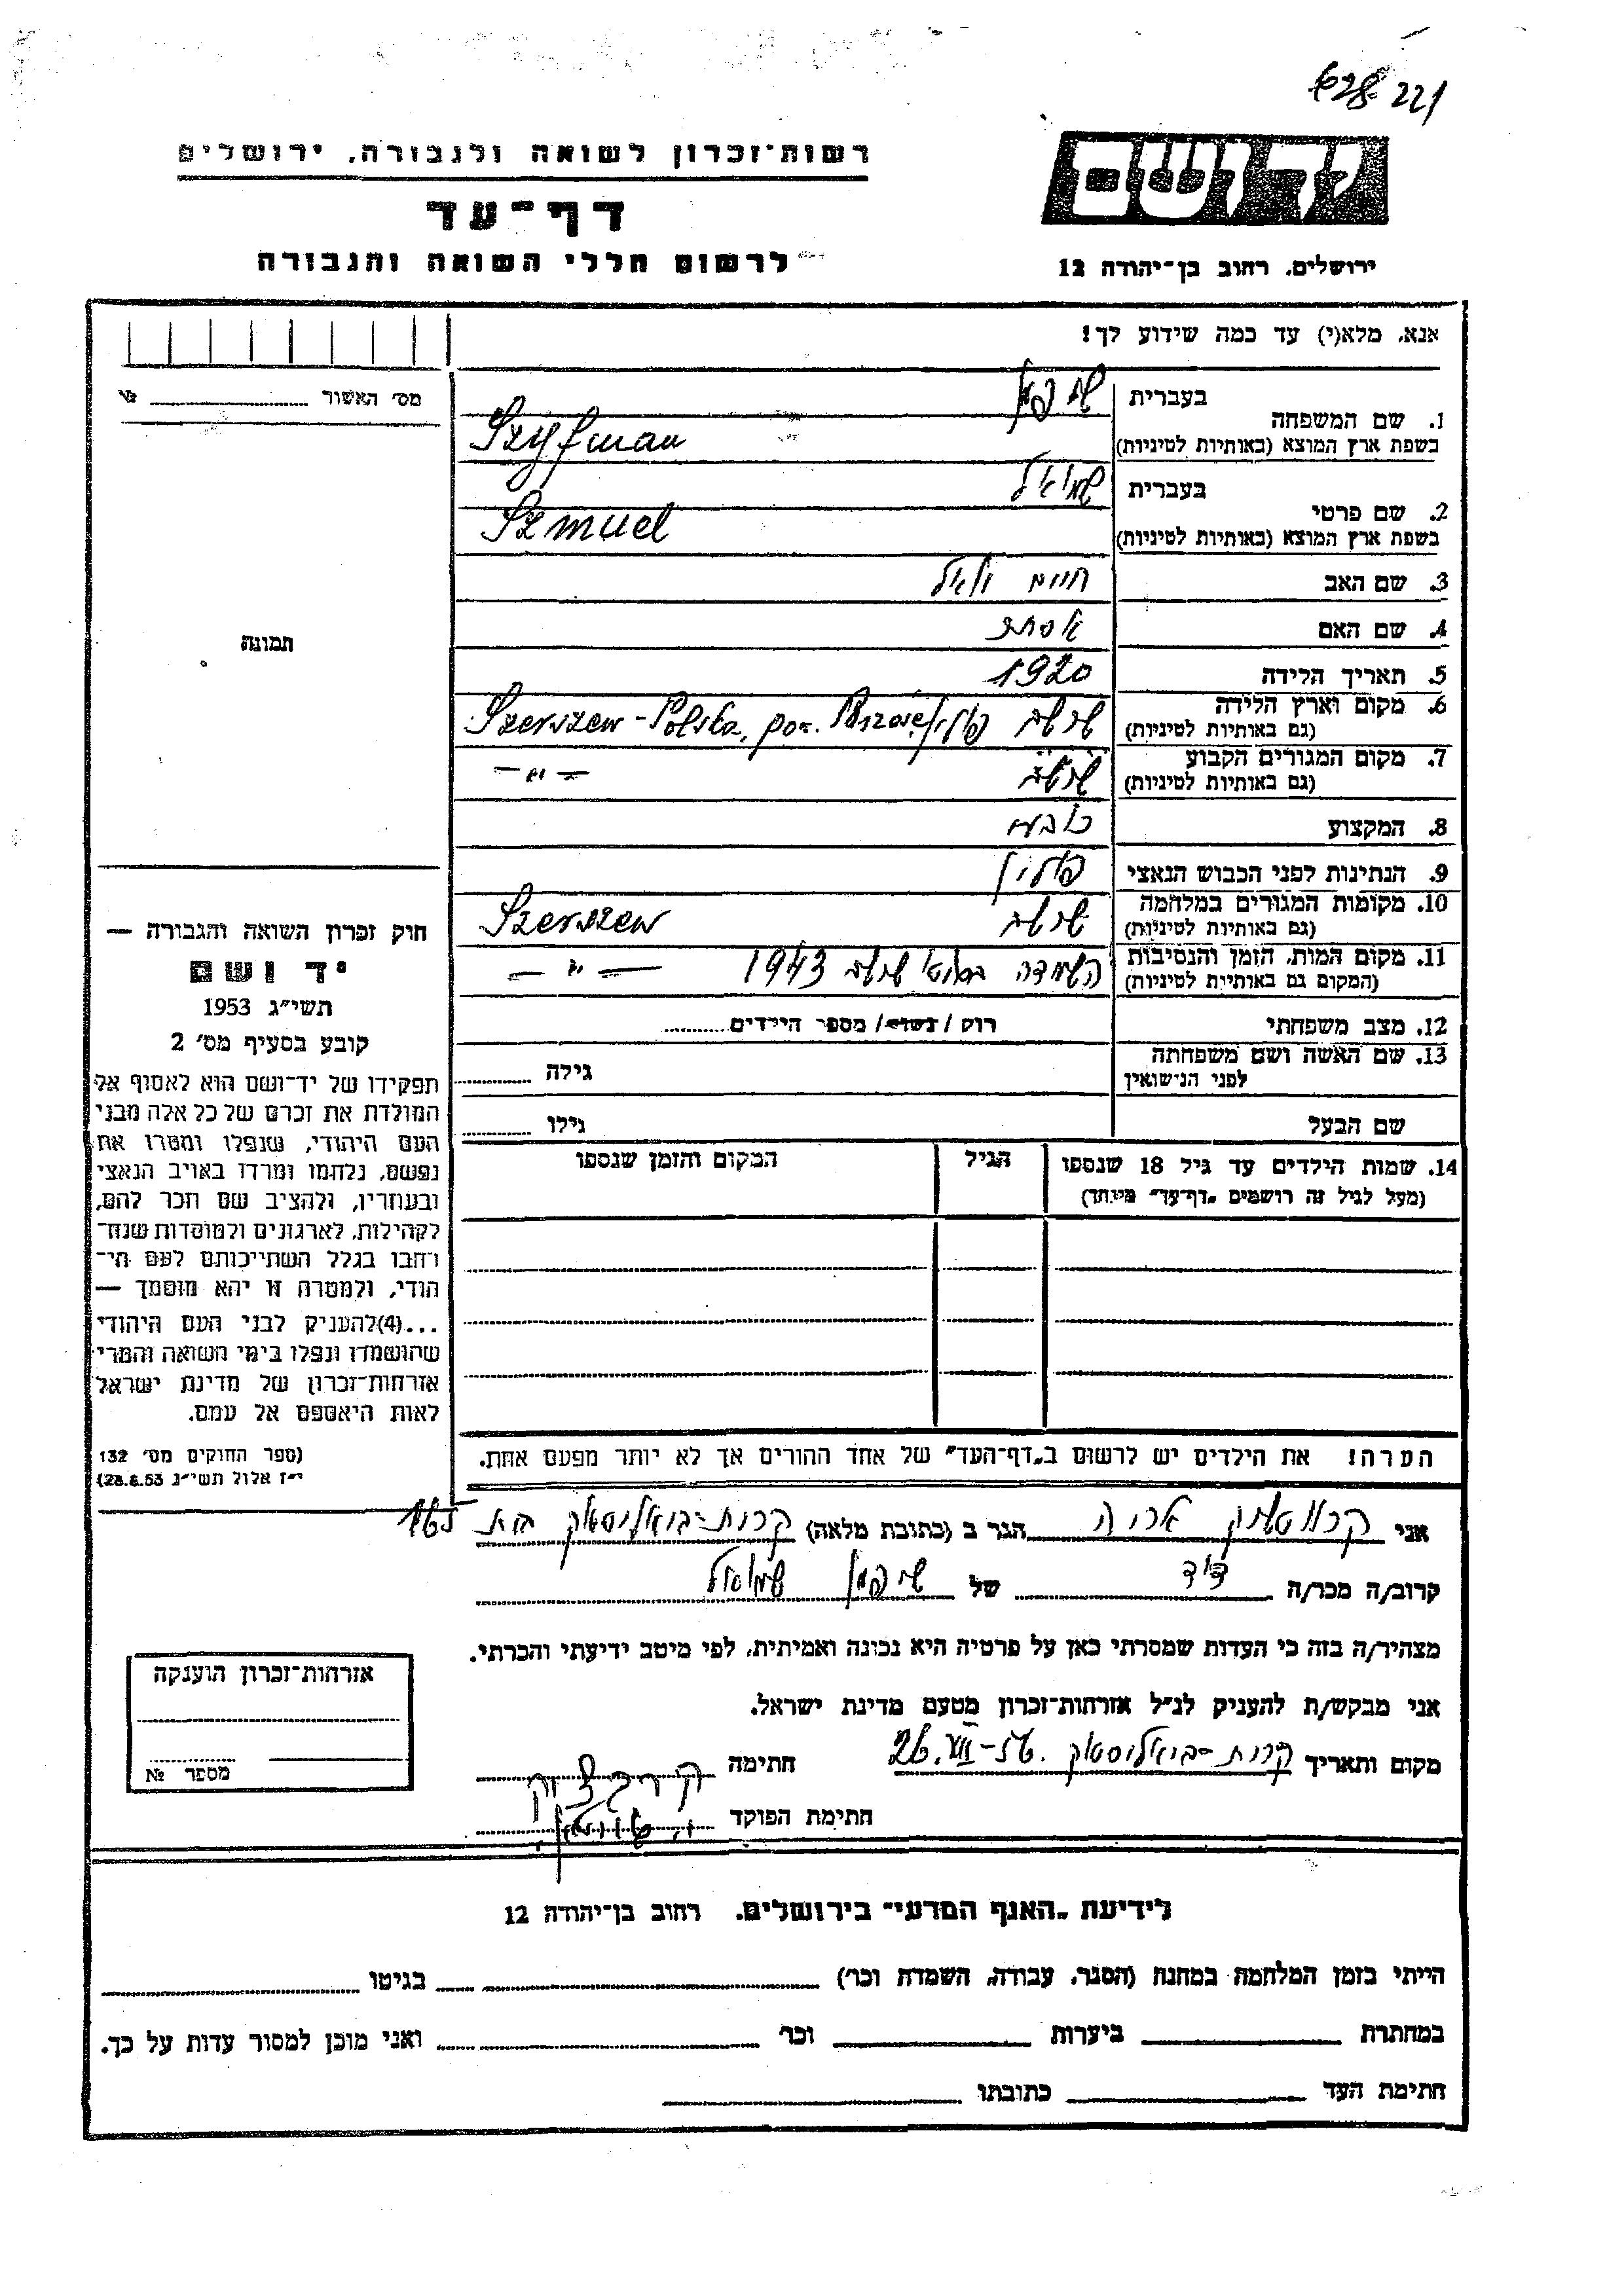 רשות־זכרון לשואה ולגבורה, ירושלים
דף־עד
לרשום חללי השואה והגבורה
יד ושם
ירושלים, רחוב בן־יהודה 12
אנא, מלא(י) עד כמה שידוע לך!
מס' האשור № 
1. שם המשפחה בעברית שיפמן
בשפת ארץ המוצא (באותיות לטיניות) Szyfman
2. שם פרטי בעברית שמואל
בשפת ארץ המוצא (באותיות לטיניות) Szmuel
3. שם האב חיים
4. שם האם אסתר
5. תאריך הלידה 1920
6. מקום וארץ הלידה (גם באותיות לטיניות) שרשב פולין Szerszew - Polska, pow.
7. מקום המגורים הקבוע (גם באותיות לטיניות) שרשב — " —
8. המקצוע
9. הנתינות לפני הכבוש הנאצי פולין
10. מקומות המגורים במלחמה (גם באותיות לטיניות) שרשב Szerszew
11. מקום המות, הזמן והנסיבות (המקום גם באותיות לטיניות) השמדה שרשב 1943 — " —
12. מצב משפחתי רוק / נשוי / מספר הילדים
13. שם האשה ושם משפחתה לפני הנישואין גילה
שם הבעל גילו
14. שמות הילדים עד גיל 18 שנספו הגיל המקום והזמן שנספו
(מעל לגיל זה רושמים „דף־עד" מיוחד)
הערה! את הילדים יש לרשום ב„דף־העד" של אחד ההורים אך לא יותר מפעם אחת.
תמונה
חוק זכרון השואה והגבורה —
יד ושם
תשי"ג 1953
קובע בסעיף מס' 2
תפקידו של יד־ושם הוא לאסוף אל
המולדת את זכרם של כל אלה מבני
העם היהודי, שנפלו ומסרו את
נפשם, נלחמו ומרדו באויב הנאצי
ובעוזריו, ולהציב שם וזכר להם,
לקהילות, לארגונים ולמוסדות שנח־
רבו בגלל השתייכותם לעם הי־
הודי, ולמטרה זו יהא מוסמך —
...(4) להעניק לבני העם היהודי
שהושמדו ונפלו בימי השואה והמרי
אזרחות־זכרון של מדינת ישראל
לאות היאספם אל עמם.
(ספר החוקים מס' 132
י"ז אלול תשי"ג 28.8.53)
אני אריה הגר ב (כתובת מלאה) קרית-ביאליסטוק
קרוב/ה מכר/ה דוד של שיפמן שמואל
מצהיר/ה בזה כי העדות שמסרתי כאן על פרטיה היא נכונה ואמיתית, לפי מיטב ידיעתי והכרתי.
אני מבקש/ת להעניק לנ"ל אזרחות־זכרון מטעם מדינת ישראל.
מקום ותאריך קרית-ביאליסטוק 26.VII-56. חתימה
חתימת הפוקד
אזרחות־זכרון הוענקה
מספר №
לידיעת „האגף המדעי" בירושלים, רחוב בן־יהודה 12
הייתי בזמן המלחמה במחנה (הסגר, עבודה, השמדה וכו') בגיטו
במחתרת ביערות וכו' ואני מוכן למסור עדות על כך.
חתימת העד כתובתו